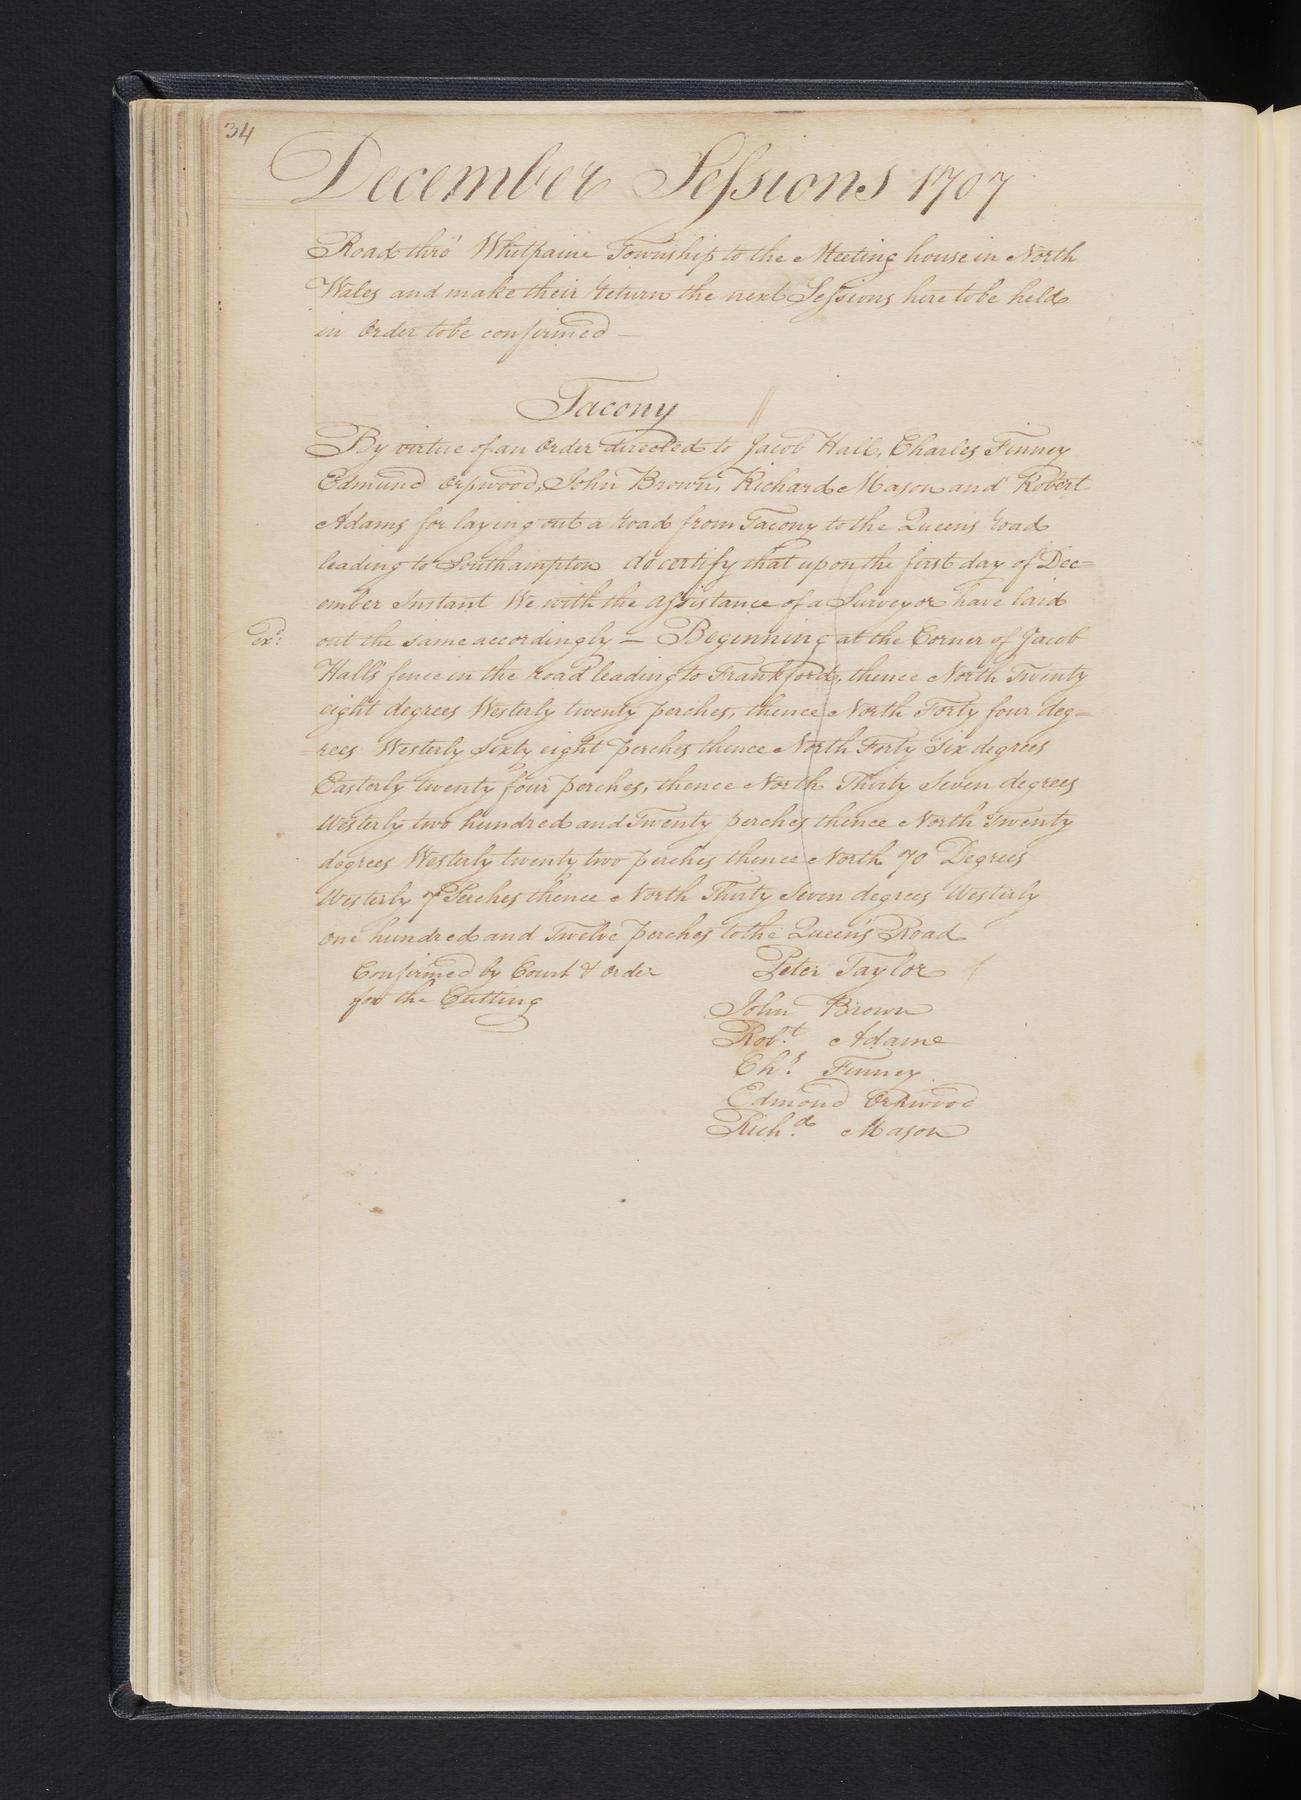 34
December Sessions 1707
Road thro' Whitpaine Township to the Meeting house in North
Wales and make their return the next Sessions here to be held
in Order to be confirmed —
Tacony
By virtue of an Order directed to Jacob Hall, Charles Finney
Edmund Orpwood, John Brown, Richard Mason and Robert
Adams for laying out a road from Tacony to the Queens road
leading to Southampton do certify that upon the first day of Dec=
ember Instant We with the assistance of a Surveyor have laid
Exd: out the same accordingly — Beginning at the Corner of Jacob
Halls fence in the road leading to Frankford, thence North Twenty
eight degrees Westerly twenty perches, thence North Forty four deg=
=rees Westerly Sixty eight perches thence North Forty Six degrees
Easterly twenty four perches, thence North Thirty Seven degrees
Westerly two hundred and Twenty perches thence North Twenty
degrees Westerly twenty two perches thence North 70 Degrees
Westerly 7 Perches thence North Thirty Seven degrees Westerly
one hundred and Twelve perches to the Queen's Road
Confirmed by Court & Order
for the Cutting
Peter Taylor
John Brown
Robt. Adame
Chs. Finney
Edmond Orpwood
Richd. Mason